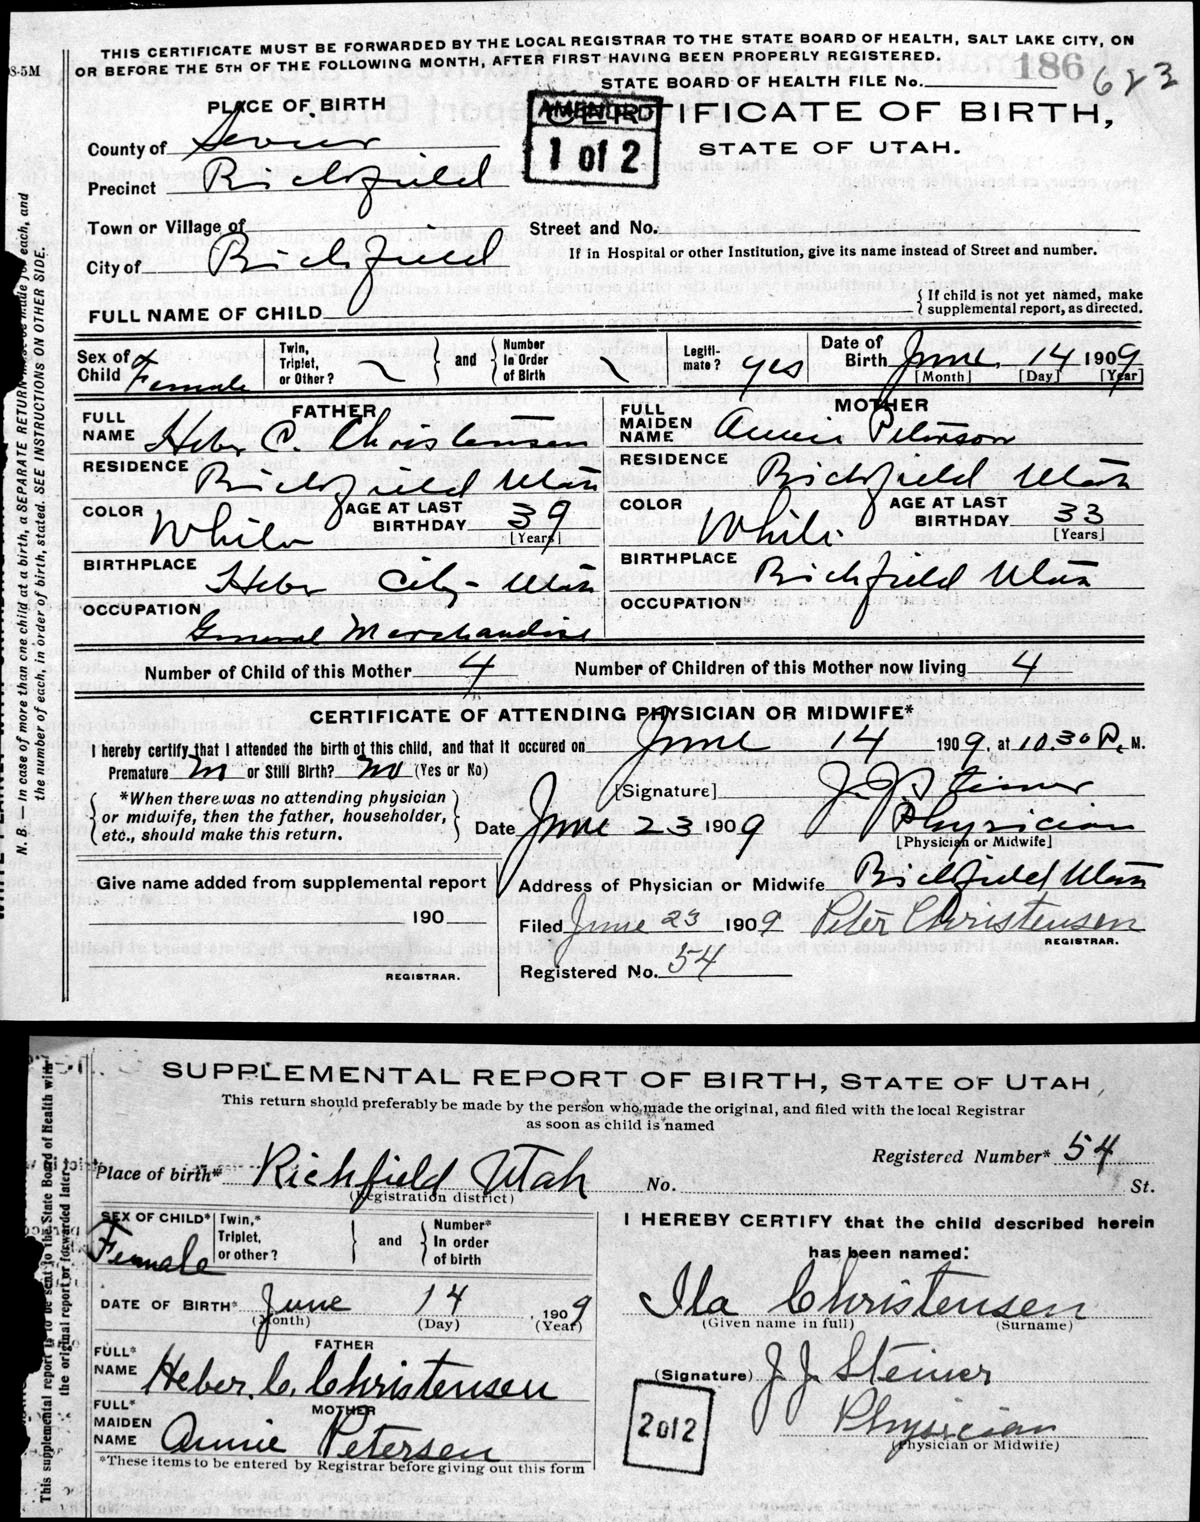 THIS CERTIFICATE MUST BE FORWARDED BY THE LOCAL REGISTRAR TO THE STATE BOARD OF HEALTH, SALT LAKE CITY, ON
OR BEFORE THE 5TH OF THE FOLLOWING MONTH, AFTER FIRST HAVING BEEN PROPERLY REGISTERED.
8-5M
STATE BOARD OF HEALTH FILE No. 186 623
PLACE OF BIRTH
CERTIFICATE OF BIRTH,
AMENDED
1 of 2
STATE OF UTAH.
County of Sevier
Precinct Richfield
Town or Village of
Street and No.
City of Richfield
If in Hospital or other Institution, give its name instead of Street and number.
FULL NAME OF CHILD
{ If child is not yet named, make
supplemental report, as directed.
Sex of Child Female
Twin, Triplet, or Other?
and
Number In Order of Birth
Legiti-mate? yes
Date of Birth June 14 1909
[Month] [Day] [Year]
FATHER
FULL NAME Heber C. Christensen
MOTHER
FULL MAIDEN NAME Annie Peterson
RESIDENCE Richfield Utah
RESIDENCE Richfield Utah
COLOR White
AGE AT LAST BIRTHDAY 39
[Years]
COLOR White
AGE AT LAST BIRTHDAY 33
[Years]
BIRTHPLACE Heber City - Utah
BIRTHPLACE Richfield Utah
OCCUPATION General Merchandise
OCCUPATION
Number of Child of this Mother 4
Number of Children of this Mother now living 4
CERTIFICATE OF ATTENDING PHYSICIAN OR MIDWIFE*
I hereby certify that I attended the birth of this child, and that it occured on June 14 1909, at 10.30 P. M.
Premature no or Still Birth? no (Yes or No)
[Signature] J. J. Steiner
*When there was no attending physician
or midwife, then the father, householder,
etc., should make this return.
Date June 23 1909
Physician
[Physician or Midwife]
Give name added from supplemental report
190
REGISTRAR.
Address of Physician or Midwife Richfield Utah
Filed June 23 1909 Peter Christensen
REGISTRAR.
Registered No. 54
N. B. — In case of more than one child at a birth, a SEPARATE RETURN must be made for each, and
the number of each, in order of birth, stated. SEE INSTRUCTIONS ON OTHER SIDE.
SUPPLEMENTAL REPORT OF BIRTH, STATE OF UTAH
This return should preferably be made by the person who made the original, and filed with the local Registrar
as soon as child is named
Registered Number* 54
Place of birth* Richfield Utah No. St.
(Registration district)
SEX OF CHILD* Female
Twin,* Triplet, or other?
and
Number* In order of birth
DATE OF BIRTH* June 14 1909
(Month) (Day) (Year)
FATHER
FULL* NAME Heber. C. Christensen
MOTHER
FULL* MAIDEN NAME Annie Petersen
*These items to be entered by Registrar before giving out this form
I HEREBY CERTIFY that the child described herein
has been named:
Ila Christensen
(Given name in full) (Surname)
(Signature) J. J. Steiner
Physician
(Physician or Midwife)
2 of 2
This supplemental report is to be sent to the State Board of Health with
the original report or forwarded later.